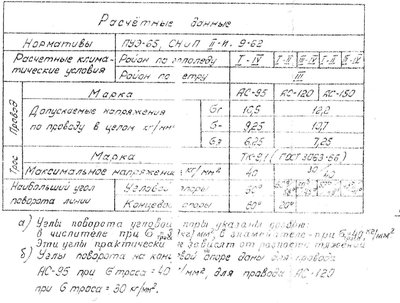 Расчётные данные
Нормативы ПУЭ-65, СНиП II-И. 9-62
Расчетные климатические условия Район по гололеду I-IV I-II III-IV I-II III-IV
Район по ветру III
Провод Марка АС-95 КС-120 КС-150
Допускаемые напряжения по проводу в целом кг/мм² Gг 10,5 12,2
G- 9,25 10,7
Gэ 6,25 7,25
Трос Марка ТК-9,1 (ГОСТ 3063-66)
Максимальное напряжение кг/мм² 40 30 40
Наибольший угол поворота линии Угловой опоры 60°
Концевой опоры 60° 20°
а) Углы поворота угловой опоры указаны
в числителе при G кг/мм², в знаменателе-при G кг/мм²
Эти углы практически зависят от разности тяжений
б) Углы поворота на концевой опоре даны для провода
АС-95 при G троса=40 кг/мм², для провода АС-120
при G троса = 30 кг/мм².